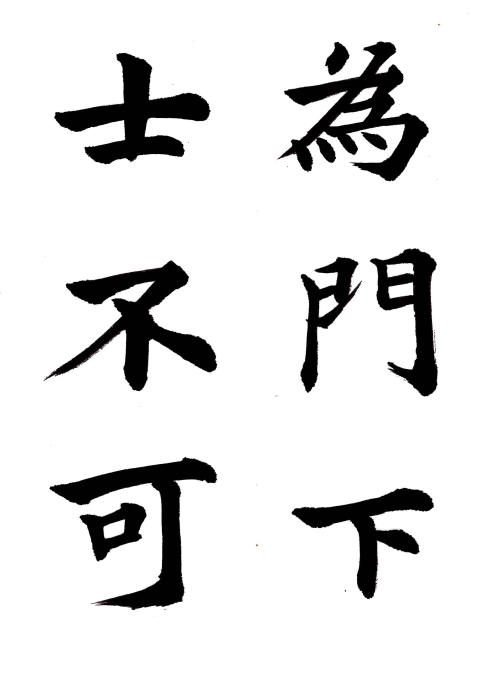 為門下
士不可